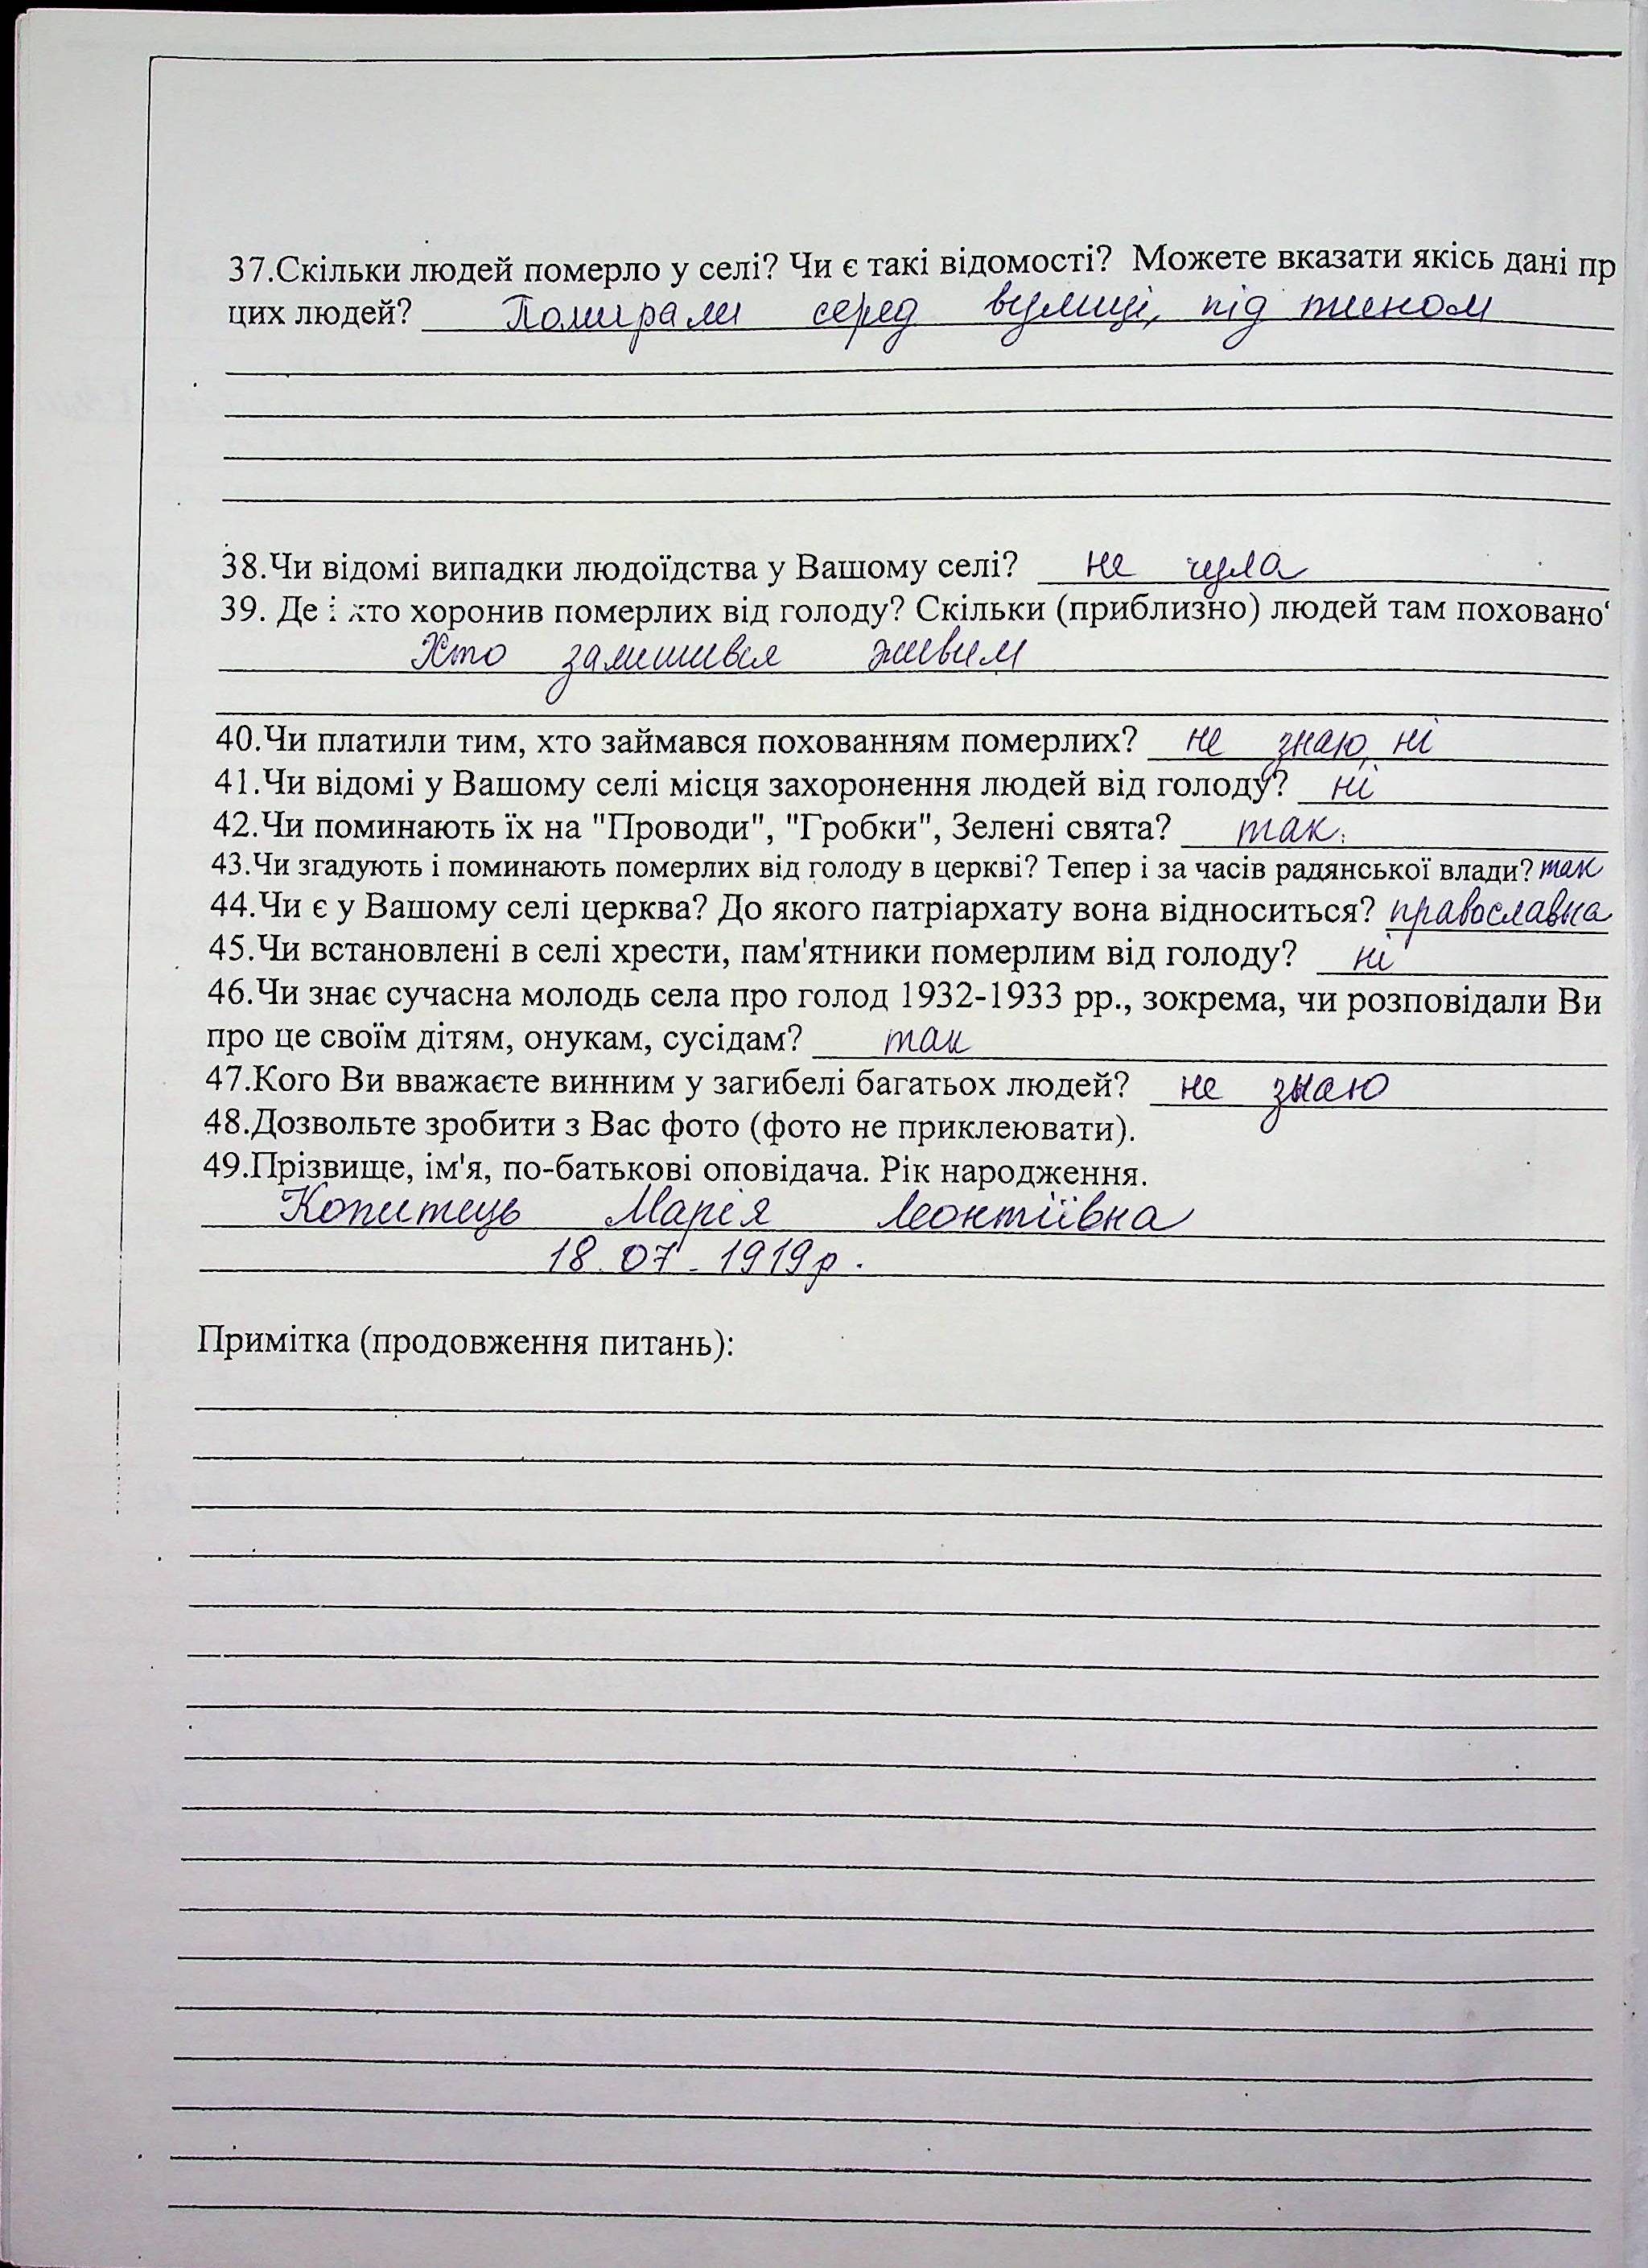 37.Скільки людей померло у селі? Чи є такі відомості? Можете вказати якісь дані пр
цих людей? Помирали серед вулиці, під тином
38.Чи відомі випадки людоїдства у Вашому селі? не чула
39. Де і хто хоронив померлих від голоду? Скільки (приблизно) людей там поховано
Хто залишився живим
40.Чи платили тим, хто займався похованням померлих? не знаю, ні
41.Чи відомі у Вашому селі місця захоронення людей від голоду? ні
42.Чи поминають їх на "Проводи", "Гробки", Зелені свята? так.
43.Чи згадують і поминають померлих від голоду в церкві? Тепер і за часів радянської влади? так
44.Чи є у Вашому селі церква? До якого патріархату вона відноситься? православна
45.Чи встановлені в селі хрести, пам'ятники померлим від голоду? ні
46.Чи знає сучасна молодь села про голод 1932-1933 рр., зокрема, чи розповідали Ви
про це своїм дітям, онукам, сусідам? так
47.Кого Ви вважаєте винним у загибелі багатьох людей? не знаю
48.Дозвольте зробити з Вас фото (фото не приклеювати).
49.Прізвище, ім'я, по-батькові оповідача. Рік народження.
Копитець Марія Леонтіївна
18.07.1919р.
Примітка (продовження питань):